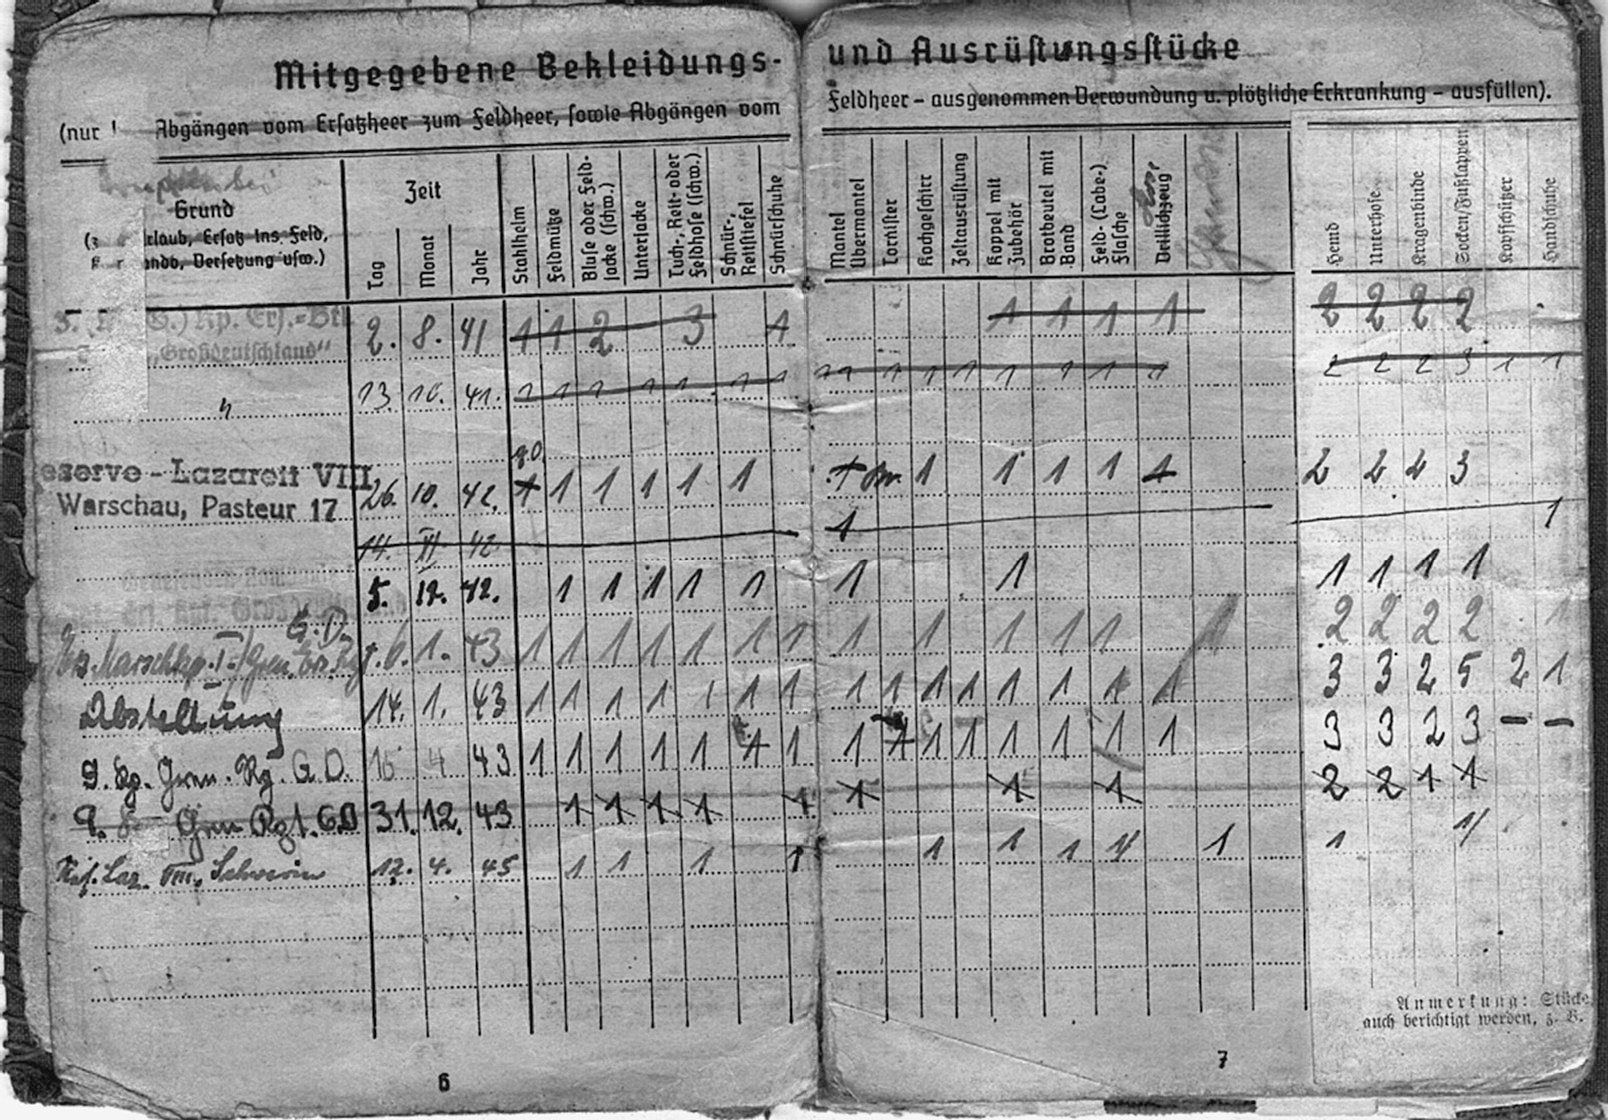 Mitgegebene Bekleidungs- und Ausrüstungsstücke
(nur Abgängen vom Ersatzheer zum Feldheer, sowie Abgängen vom Feldheer – ausgenommen Verwundung u. plötzliche Erkrankung – ausfüllen).
Grund
rlaub, Ersatz ins Feld,
ando, Versetzung usw.)
Zeit
Tag
Monat
Jahr
Stahlhelm
Feldmütze
Bluse oder Feld-
jacke (schw.)
Unterjacke
Tuch-, Reit- oder
Feldhose (schw.)
Schnür-,
Reitstiefel
Schnürschuhe
Mantel
Übermantel
Tornister
Kochgeschirr
Zeltausrüstung
Koppel mit
Zubehör
Brotbeutel mit
Band
Feld- (Labe-)
flasche
Drillichzeug
Hemd
Unterhose
Kragenbinde
Socken/Fußlappen
Kopfschützer
Handschuhe
G.) Kp. Ers.-Btl.
„Großdeutschland“
2. 8. 41 1 1 2 3 1 1 1 1 1 2 2 2 2
13. 10. 41. 1 1 1 1 1 1 1 1 1 1 1 1 1 1 1 1 2 2 2 3 1 1
eserve - Lazarett VIII
Warschau, Pasteur 17
26. 10. 42. 1 1 1 1 1 1 1 1 1 1 1 1 2 2 2 3
14. XI 42. 1 1
5. 12. 42. 1 1 1 1 1 1 1 1 1 1 1
G. D.
6. 1. 43 1 1 1 1 1 1 1 1 1 1 1 1 1 2 2 2 2 1
Abstellung 14. 1. 43 1 1 1 1 1 1 1 1 1 1 1 1 1 1 1 3 3 2 5 2 1
9. Kp. Gren. Rg. G. D. 16 4 43 1 1 1 1 1 1 1 1 1 1 1 1 1 1 1 3 3 2 3 – –
9. Gren Rgt. G.D 31. 12. 43 1 1 1 1 1 1 1 1 2 2 1 1
Res. Laz. VIII, Schwerin 12. 4. 45 1 1 1 1 1 1 1 1 1 1 1
Anmerkung: Stücke
auch berichtigt werden, z. B.
6
7